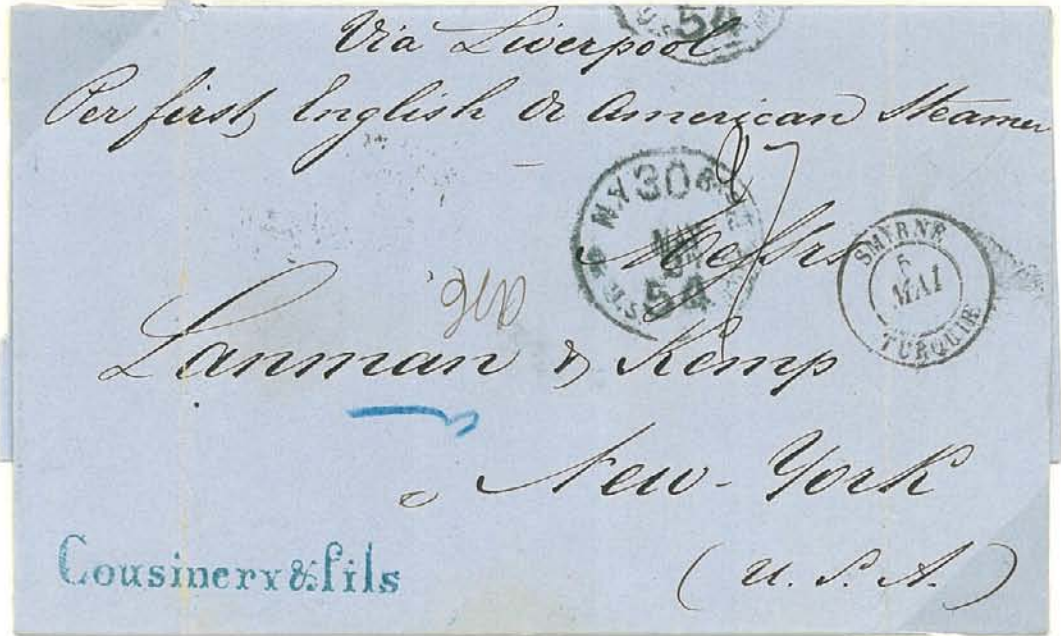 54
Via Liverpool
Per first English or American Steamer
N.Y. 30
MAY
54
U.S.
Messrs
SMYRNE
5
MAI
TURQUIE
Lanman & Kemp
New-York
(U.S.A.)
Cousinery & fils